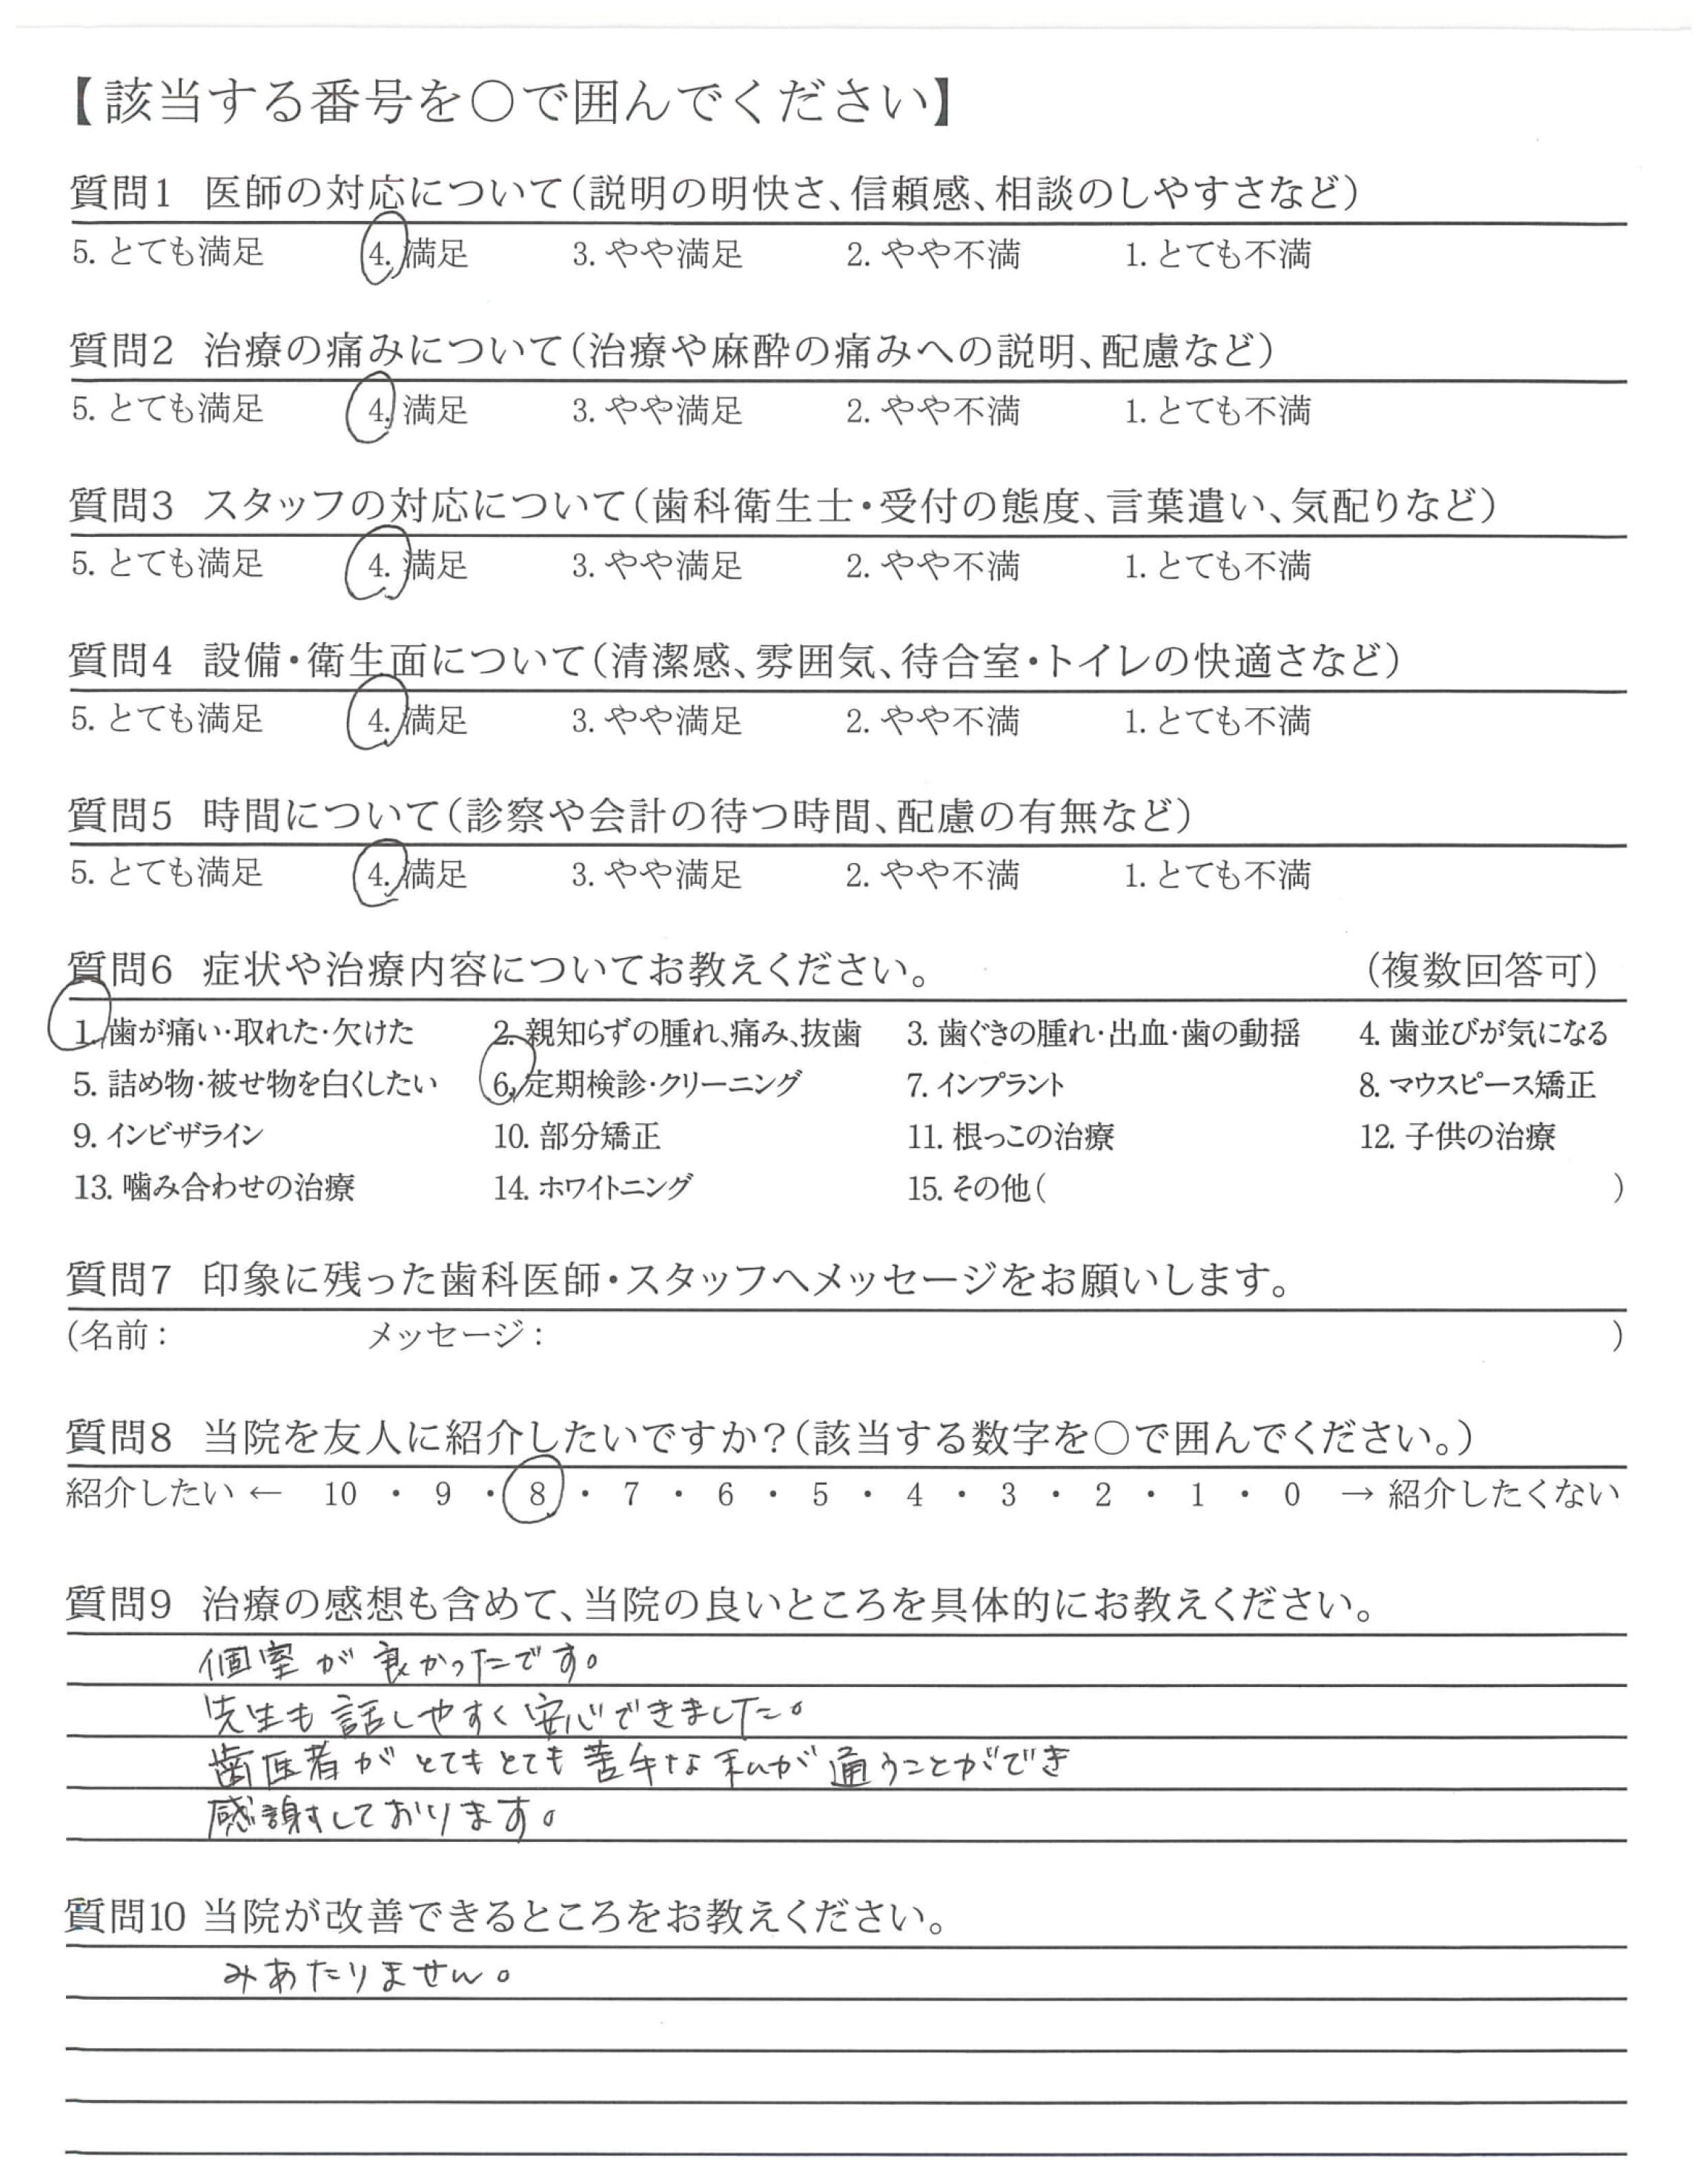 【該当する番号を○で囲んでください】
質問1 医師の対応について(説明の明快さ、信頼感、相談のしやすさなど)
5. とても満足 4. 満足 3. やや満足 2. やや不満 1. とても不満
質問2 治療の痛みについて(治療や麻酔の痛みへの説明、配慮など)
5. とても満足 4. 満足 3. やや満足 2. やや不満 1. とても不満
質問3 スタッフの対応について(歯科衛生士・受付の態度、言葉遣い、気配りなど)
5. とても満足 4. 満足 3. やや満足 2. やや不満 1. とても不満
質問4 設備・衛生面について(清潔感、雰囲気、待合室・トイレの快適さなど)
5. とても満足 4. 満足 3. やや満足 2. やや不満 1. とても不満
質問5 時間について(診察や会計の待つ時間、配慮の有無など)
5. とても満足 4. 満足 3. やや満足 2. やや不満 1. とても不満
質問6 症状や治療内容についてお教えください。 (複数回答可)
1. 歯が痛い・取れた・欠けた 2. 親知らずの腫れ、痛み、抜歯 3. 歯ぐきの腫れ・出血・歯の動揺 4. 歯並びが気になる
5. 詰め物・被せ物を白くしたい 6. 定期検診・クリーニング 7. インプラント 8. マウスピース矯正
9. インビザライン 10. 部分矯正 11. 根っこの治療 12. 子供の治療
13. 噛み合わせの治療 14. ホワイトニング 15. その他( )
質問7 印象に残った歯科医師・スタッフへメッセージをお願いします。
(名前： メッセージ： )
質問8 当院を友人に紹介したいですか？(該当する数字を○で囲んでください。)
紹介したい ← 10 ・ 9 ・ 8 ・ 7 ・ 6 ・ 5 ・ 4 ・ 3 ・ 2 ・ 1 ・ 0 → 紹介したくない
質問9 治療の感想も含めて、当院の良いところを具体的にお教えください。
個室が良かったです。
先生も話しやすく安心できました。
歯医者がとてもとても苦手な私が通うことができ
感謝しております。
質問10 当院が改善できるところをお教えください。
みあたりません。